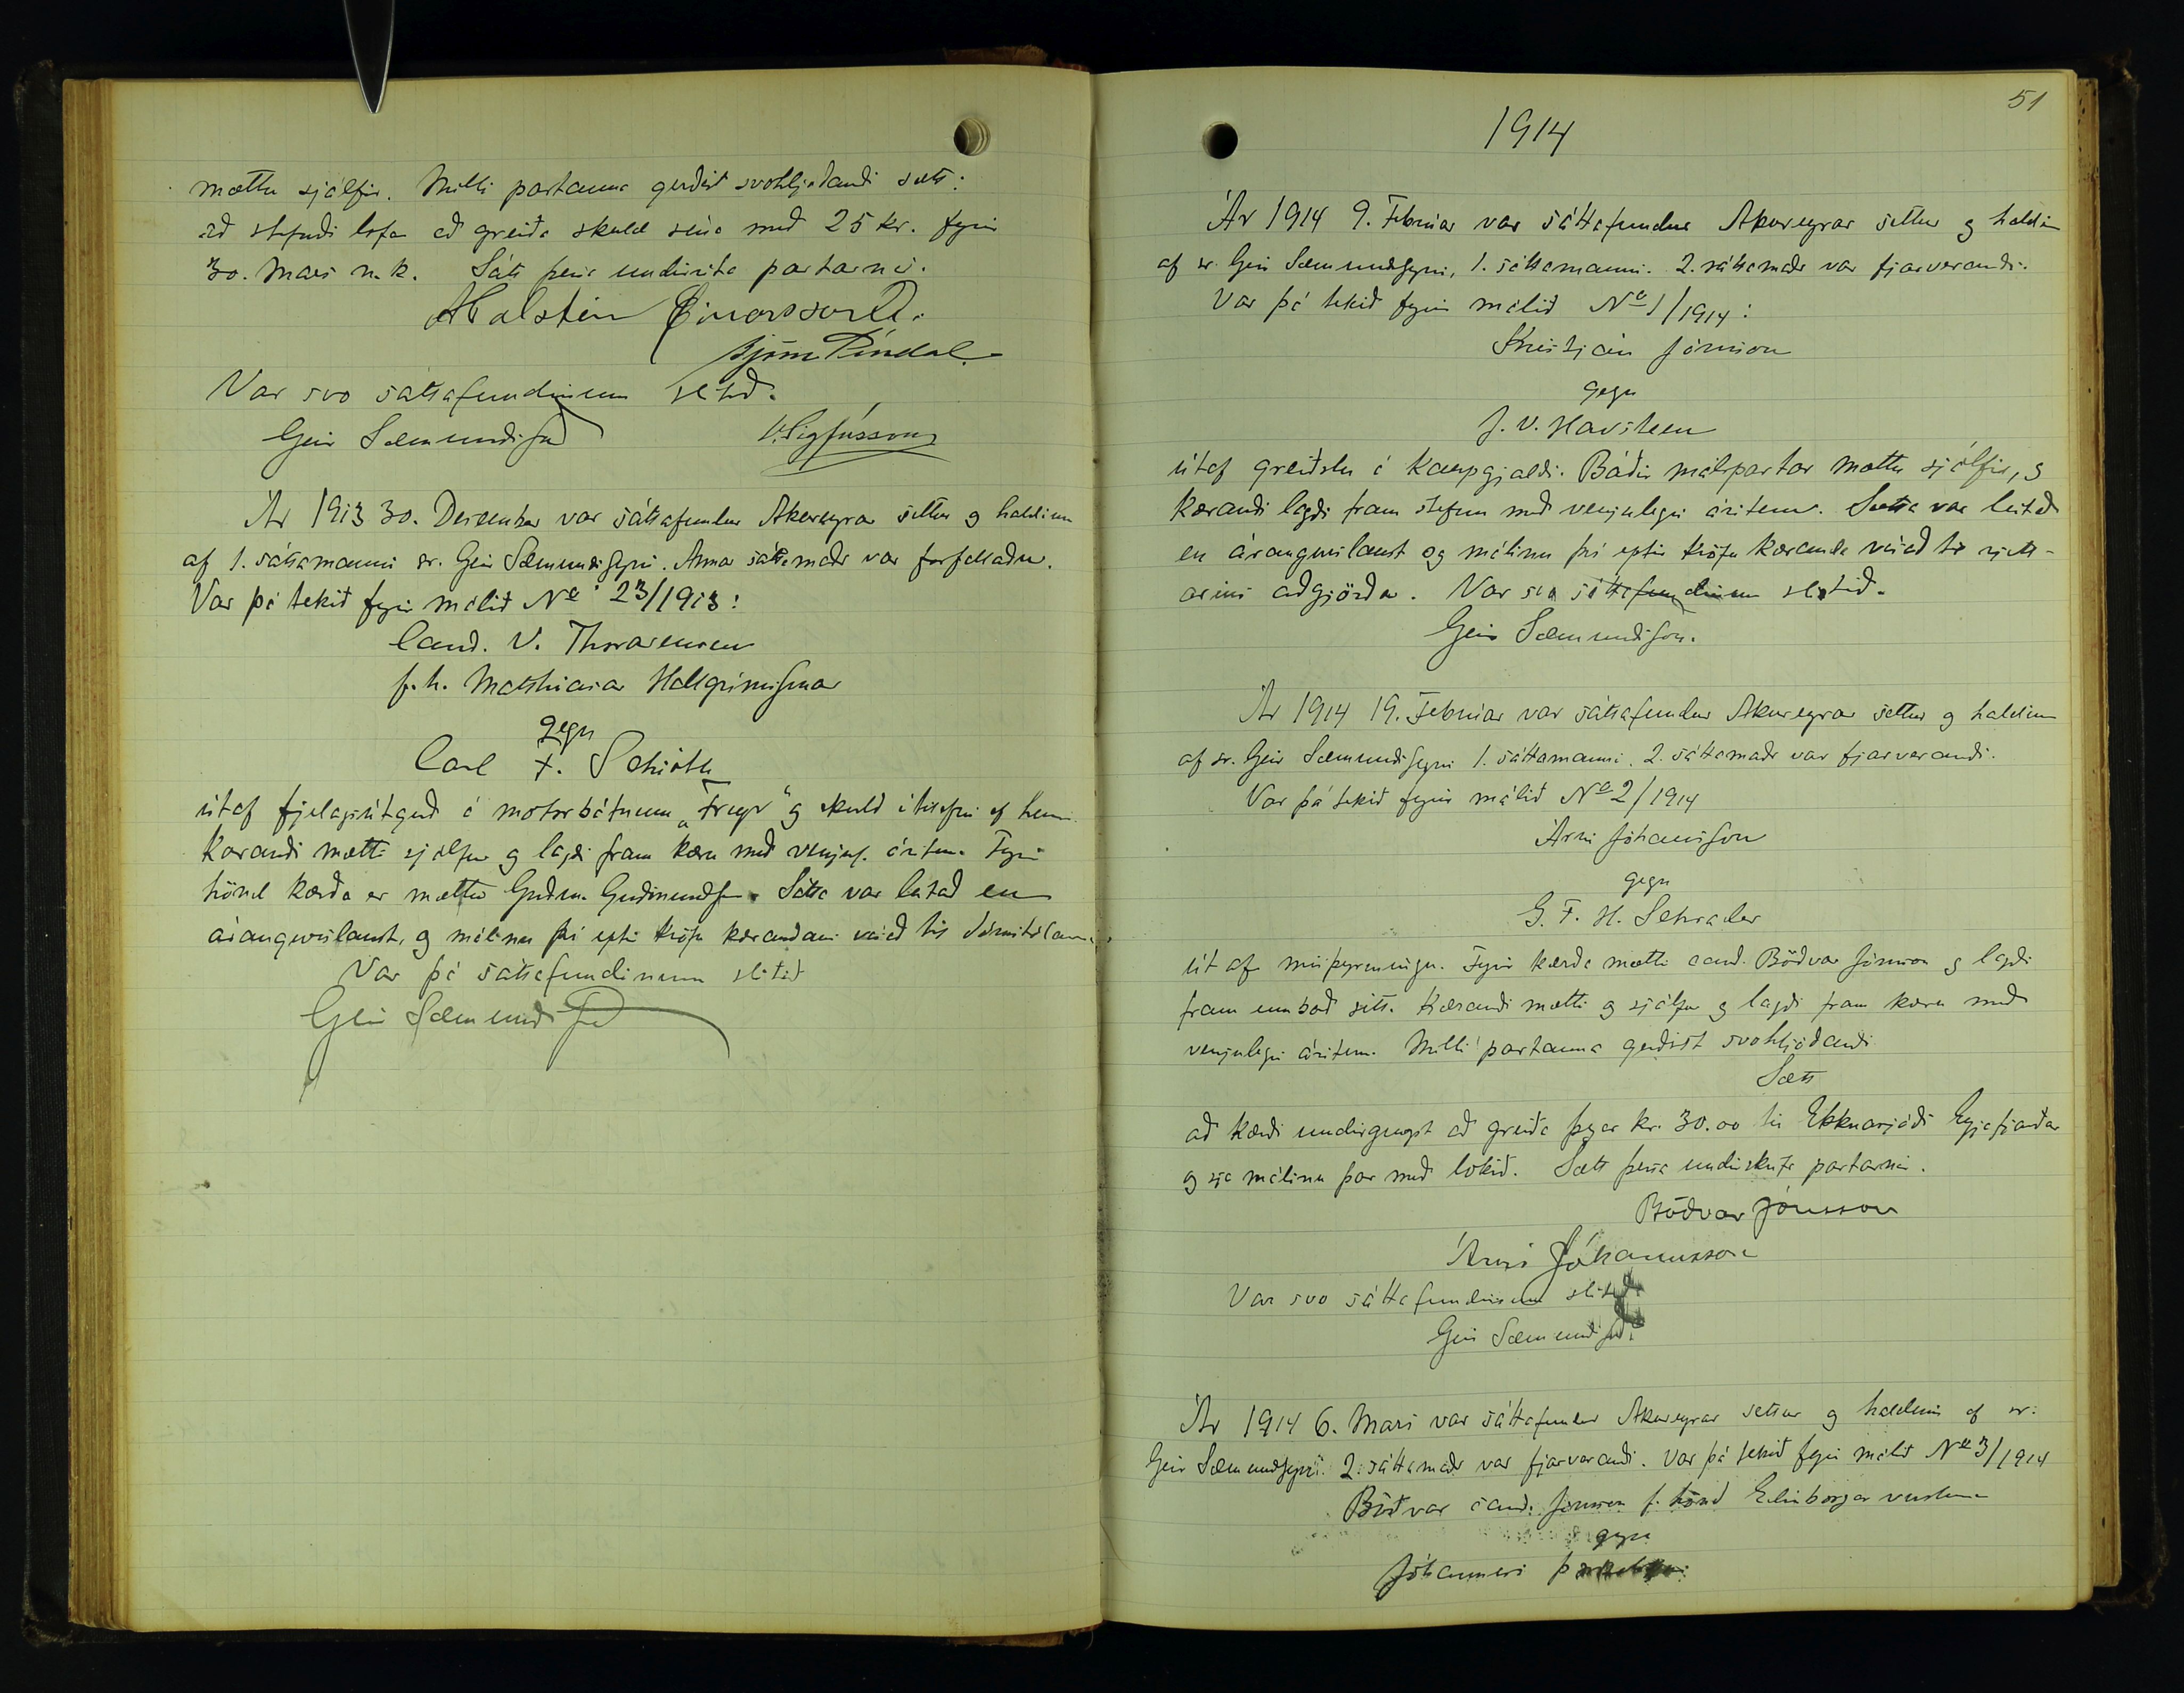 mættu sjálfir. Milli partanna gerðist svohljóðandi sátt:
að stefndi lofar að greiða skuld sína með 25 kr. fyrir
30. Mars n.k. Sátt þessa undirrita partarnir.
Aðalsteinn Einarsson
Björn Líndal
Var svo sáttafundinum slitið.
Geir Sæmundsson V. Sigfússon
Ár 1913 30. Desember var sáttafundur Akureyrar settur og haldinn
af 1. sáttamanni sr. Geir Sæmundssyni. Annar sáttamaðr var forfallaður.
Var þá tekið fyrir málið No 23/1913:
Cand. V. Thorarensen
f.h. Matthiasar Hallgrímssonar
gegn
Carl F. Schiöth
útaf fjelagsútgerð á motorbátnum „Freyr“ og skuld í tilefni af henni.
Kærandi mætti sjálfur og lagði fram kæru með venjul. áritun. Fyrir
hönd kærða er mættur Guðm. Guðmundsson. Sátta var leitað en
árangurslaust, og málinu því eptir kröfu kærandans vísað til dómstólanna.
Var þá sáttafundinum slitið
Geir Sæmundsson
51
1914
Ár 1914 9. Febrúar var sáttafundur Akureyrar settur og haldinn
af sr. Geir Sæmundssyni, 1. sáttamanni. 2. sáttamaðr var fjarverandi.
Var þá tekið fyrir málið No 1/1914:
Kristján Jónsson
gegn
J. V. Havsteen
útaf greiðslu á kaupgjaldi. Báðir málspartar mættu sjálfir, og
kærandi lagði fram stefnu með venjulegri áritun. Sátta var leitað
en árangurslaust og málinu því eptir kröfu kæranda vísað til rjett-
arins aðgjörða. Var svo sáttafundinum slitið.
Geir Sæmundsson.
Ár 1914 19. Febrúar var sáttafundur Akureyrar settur og haldinn
af sr. Geir Sæmundssyni 1. sáttamanni. 2. sáttamaðr var fjarverandi.
Var þá tekið fyrir málið No 2/1914
Árni Jóhannsson
gegn
G. F. H. Schrader
út af misþyrmingu. Fyrir kærða mætti cand. Böðvar Jónsson og lagði
fram umboð sitt. Kærandi mætti og sjálfur og lagði fram kæru með
venjulegri áritun. Milli partanna gerðist svohljóðandi
Sætt
að kærði undirgengst að greiða þegar kr. 30.00 til Ekknasjóðs Eyjafjarðar
og sje málinu þar með lokið. Sætt þessa undirskrifa partarnir.
Böðvar Jónsson
Árni Jóhannsson
Var svo sáttafundinum slitið.
Geir Sæmundsson.
Ár 1914 6. Mars var sáttafundur Akureyrar settur og haldinn af sr.
Geir Sæmundssyni. 2. sáttamaðr var fjarverandi. Var þá tekið fyrir málið No 3/1914
Böðvar cand. Jónsson f. hönd Edinborgar verslunar
gegn
Jóhannesi